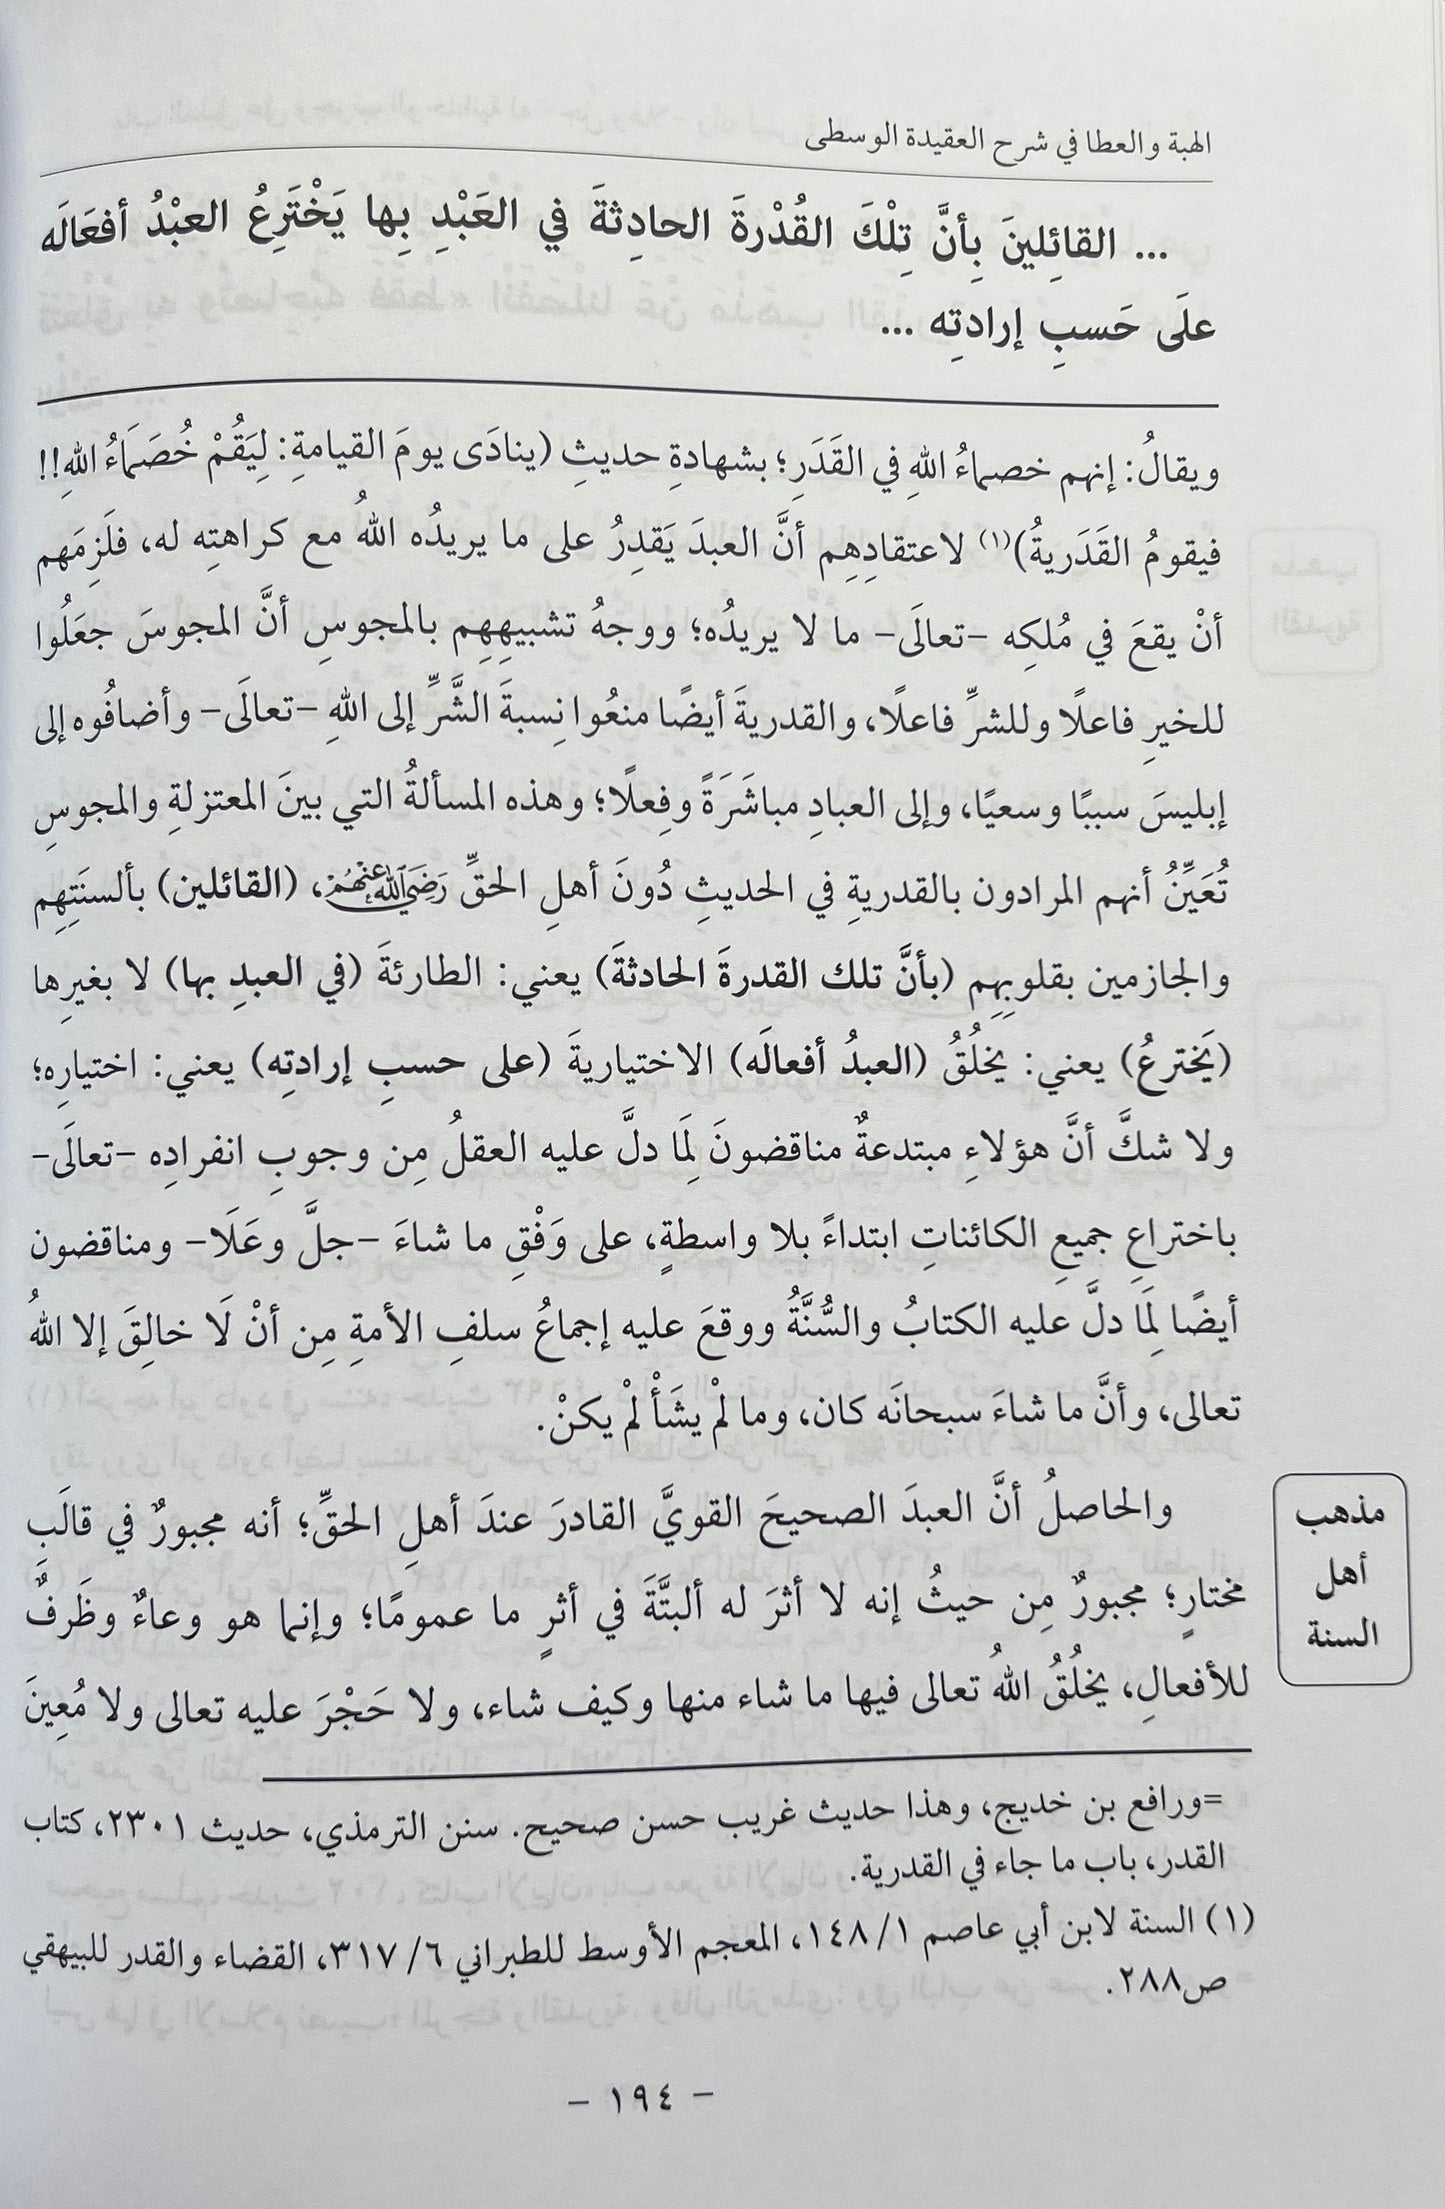 الهبة والعطا في شرح العقيدة الوسطى
... القائِلينَ بِأنَّ تِلْكَ القُدْرةَ الحادِثةَ في العَبْدِ بِها يَخْتَرِعُ العبْدُ أفعَالَه
علَى حَسبِ إرادتِه ...
ويقالُ: إنهم خصماءُ اللهِ في القَدَرِ؛ بشهادةِ حديثِ (ينادَى يومَ القيامةِ: لِيَقُمْ خُصَمَاءُ اللهِ!!
فيقومُ القَدَريةُ)(١) لاعتقادِهِم أنَّ العبدَ يَقدِرُ على ما يريدُه اللهُ مع كراهتِه له، فلَزِمَهم
أنْ يقعَ في مُلكِه -تعالَى- ما لا يريدُه؛ ووجهُ تشبيهِهِم بالمجوسِ أنَّ المجوسَ جعَلُوا
للخيرِ فاعلًا وللشرِّ فاعلًا، والقدريةَ أيضًا منعُوا نِسبةَ الشَّرِّ إلى اللهِ -تعالَى- وأضافُوه إلى
إبليسَ سببًا وسعيًا، وإلى العبادِ مباشَرَةً وفِعلًا؛ وهذه المسألةُ التي بينَ المعتزلةِ والمجوسِ
تُعَيِّنُ أنهم المرادون بالقدريةِ في الحديثِ دُونَ أهلِ الحقِّ رَضِيَ اللهُ عَنْهُمْ، (القائلين) بألسنَتِهِم
والجازمين بقلوبِهِم (بأنَّ تلك القدرةَ الحادثةَ) يعني: الطارئةَ (في العبدِ بها) لا بغيرِها
(يَخترعُ) يعني: يخلُقُ (العبدُ أفعالَه) الاختياريةَ (على حسبِ إرادتِه) يعني: اختيارِه؛
ولا شكَّ أنَّ هؤلاءِ مبتدعةٌ مناقضونَ لِمَا دلَّ عليه العقلُ مِن وجوبِ انفرادِه -تعالَى-
باختراعِ جميعِ الكائناتِ ابتداءً بلا واسطةٍ، على وَفْقِ ما شاءَ -جلَّ وعَلَا- ومناقضون
أيضًا لِمَا دلَّ عليه الكتابُ والسُّنَّةُ ووقعَ عليه إجماعُ سلفِ الأمةِ مِن أنْ لَا خالِقَ إلا اللهُ
تعالى، وأنَّ ما شاءَ سبحانَه كان، وما لمْ يشَأْ لمْ يكنْ.
والحاصلُ أنَّ العبدَ الصحيحَ القويَّ القادرَ عندَ أهلِ الحقِّ؛ أنه مجبورٌ في قالَبِ
مختارٍ؛ مجبورٌ مِن حيثُ إنه لا أثرَ له ألبتَّةَ في أثرٍ ما عمومًا؛ وإنما هو وعاءٌ وظَرفٌ
للأفعالِ، يخلُقُ اللهُ تعالى فيها ما شاء منها وكيف شاء، ولا حَجْرَ عليه تعالى ولا مُعِينَ
مذهب
أهل
السنة
=ورافع بن خديج، وهذا حديث غريب حسن صحيح. سنن الترمذي، حديث ٢٣٠١، كتاب
القدر، باب ما جاء في القدرية.
(١) السنة لابن أبي عاصم ١/ ١٤٨، المعجم الأوسط للطبراني ٦/ ٣١٧، القضاء والقدر للبيهقي
ص٢٨٨.
- ١٩٤ -